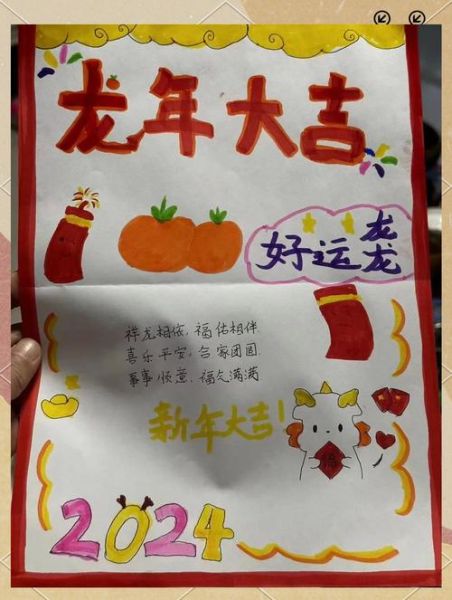 龙年大吉
好运龙龙
祥龙相依,福佑相伴
喜乐平安,合家团圆
事事顺意,福气满满
新年大吉!
福
2024